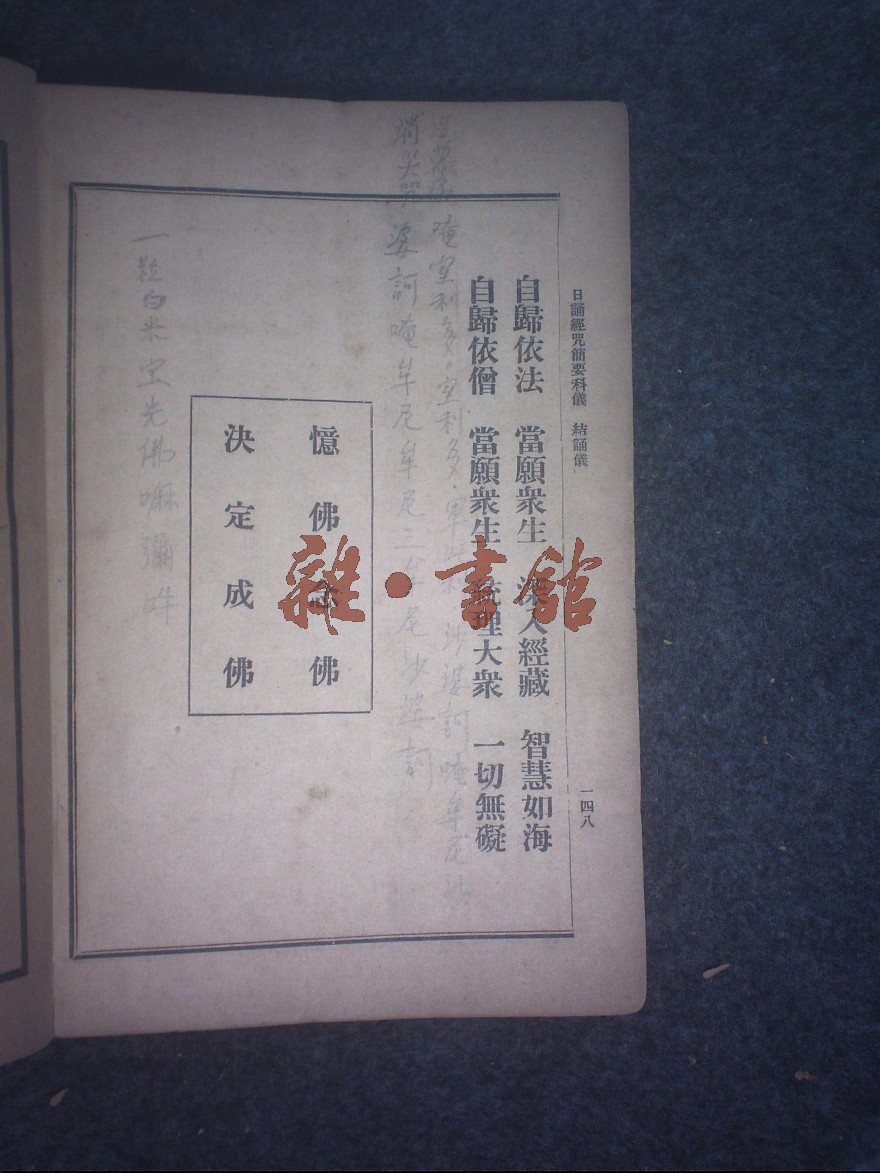 日誦經咒簡要科儀　結誦儀
一四八
自歸依法　當願衆生　深入經藏　智慧如海
自歸依僧　當願衆生　統理大衆　一切無礙
唵室利多·室利多·軍吒利沙婆訶唵牟尼
婆訶唵牟尼牟尼三牟尼沙婆訶
憶佛念佛
決定成佛
一粒白米宝光佛嘛彌吽
雜·書館